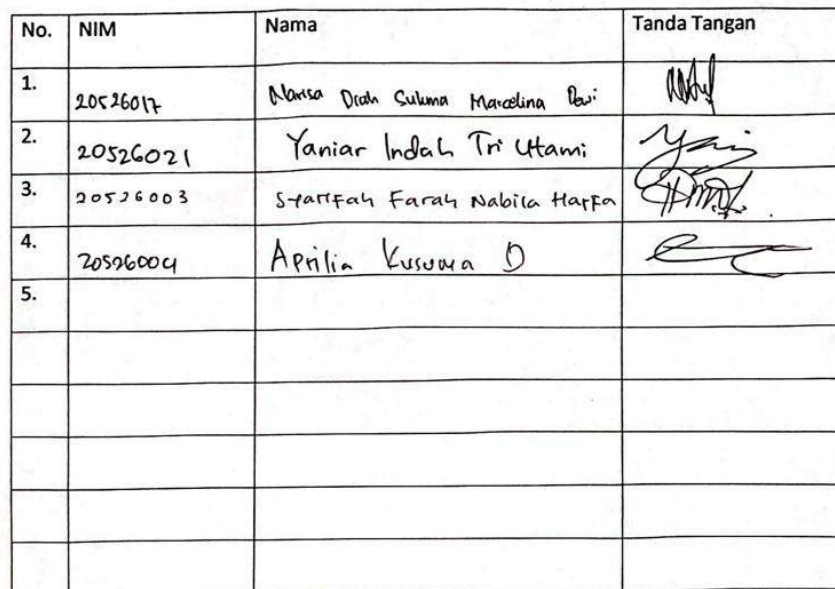 No. NIM Nama Tanda Tangan
1. 20526017 Narisa Diah Sukma Marcelina Dewi
2. 20526021 Yaniar Indah Tri Utami
3. 20526003 Syarifah Farah Nabila Harfa
4. 20526004 Aprilia Kusuma D
5.